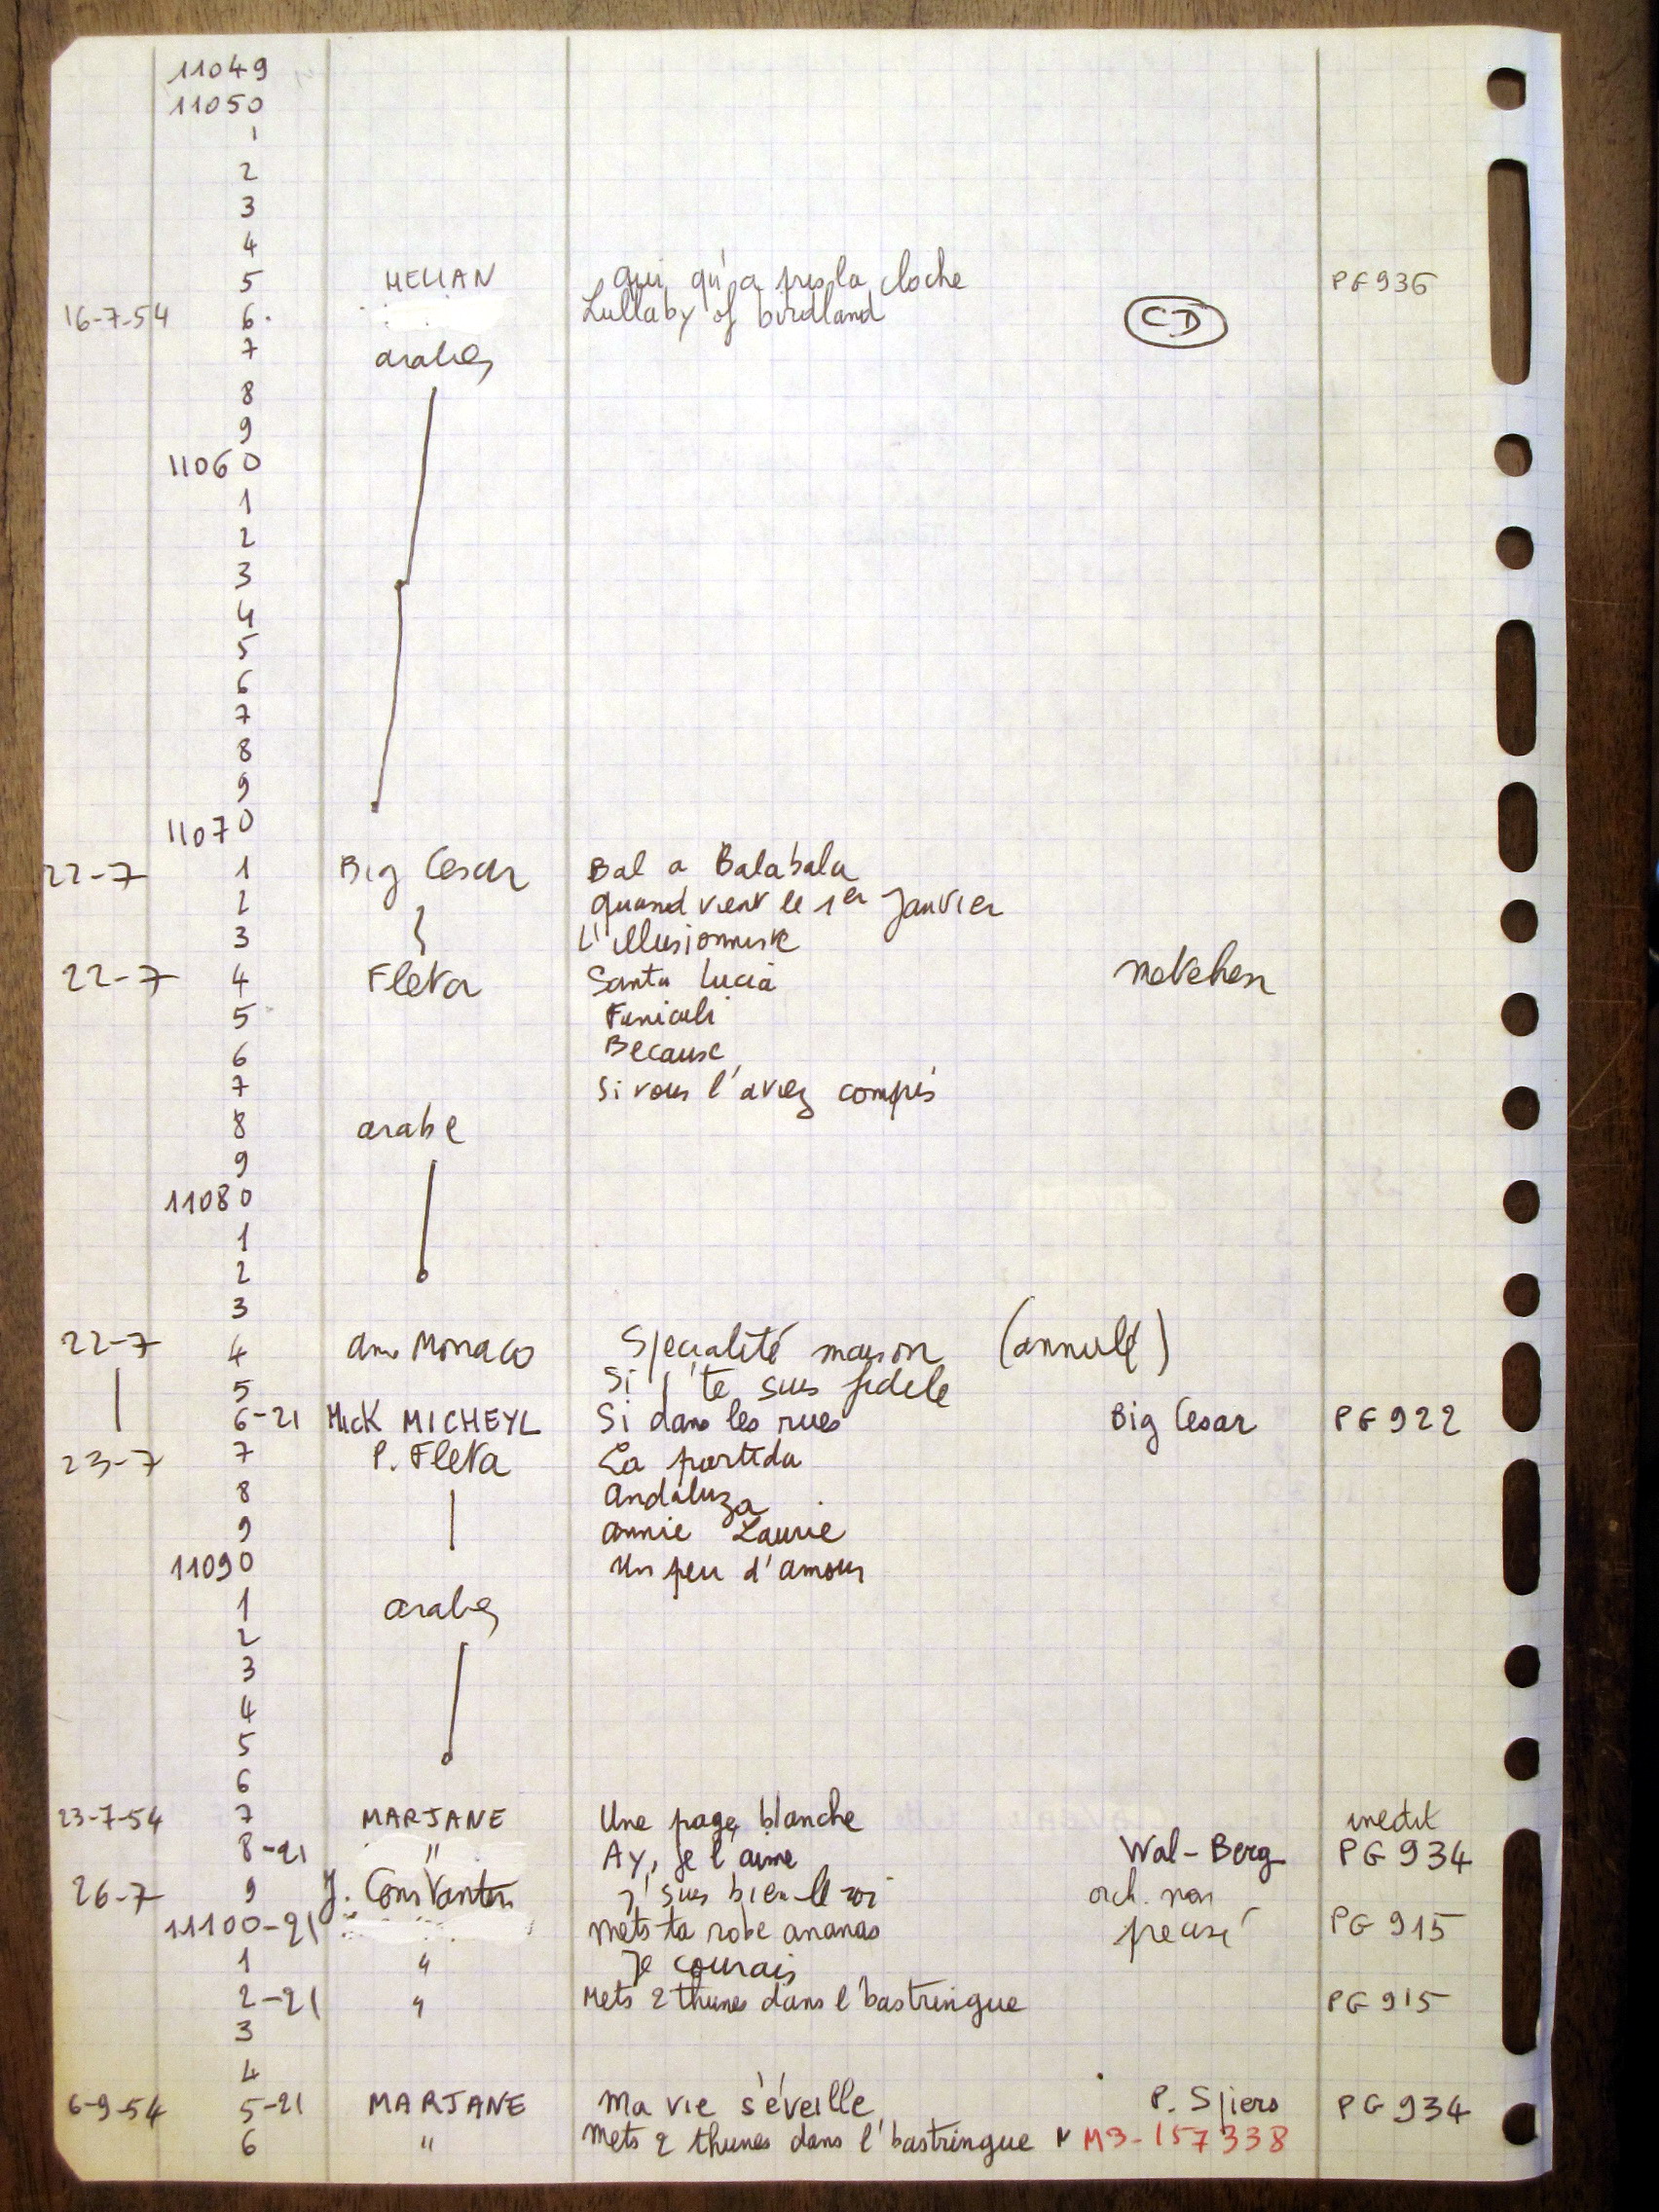 11049
11050
1
2
3
4
5 HELIAN qui qu'a pris la cloche PG 936
16-7-54 6. Lullaby of birdland CD
7 arabes
8
9
11060
1
2
3
4
5
6
7
8
9
11070
22-7 1 Big Cesar Bal a Balabala
2 quand vient le 1er Janvier
3 L'illusionniste
22-7 4 Fleta Santa Lucia Metehen
5 Funiculi
6 Because
7 Si vous l'aviez compris
8 arabe
9
11080
1
2
3
22-7 4 Monaco Spécialité maison (annulé)
5 Si j'te suis fidele
6-21 Mick MICHEYL Si dans les rues Big Cesar PG 922
23-7 7 P. Fleta La partida
8 Andaluza
9 Annie Laurie
11090 Un peu d'amour
1 arabes
2
3
4
5
6
23-7-54 7 MARJANE Une page blanche inedit
8-21 " Ay, je l'aime Wal-Berg PG 934
26-7 9 J. Constantin J'suis bien le roi orch. non
11100-21 Mets ta robe ananas précisé PG 915
1 " Je courais
2-21 " Mets 2 thunes dans l'bastringue PG 915
3
4
6-9-54 5-21 MARJANE Ma vie s'éveille P. Spiers PG 934
6 " Mets 2 thunes dans l'bastringue M3-157338